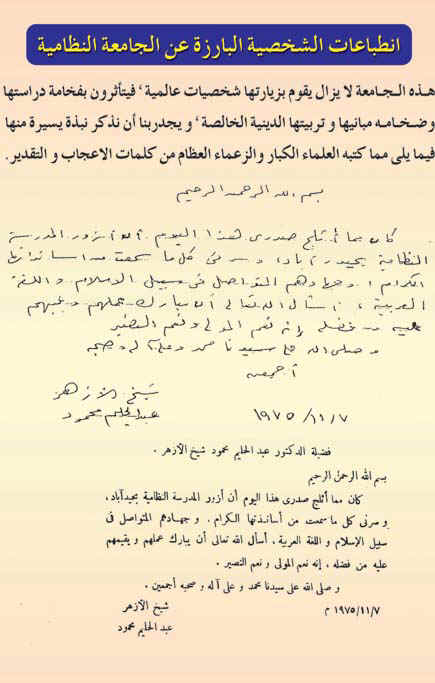 انطباعات الشخصية البارزة عن الجامعة النظامية
هذه الجامعة لا يزال يقوم بزيارتها شخصيات عالمية، فيتأثرون بفخامة دراستها
وضخامه مبانيها و تربيتها الدينية الخالصة، و يجدربنا أن نذكر نبذة يسيرة منها
فيما يلى مما كتبه العلماء الكبار والزعماء العظام من كلمات الاعجاب و التقدير.
بسم الله الرحمن الرحيم
كان مما أثلج صدرى هذا اليوم أن أزور المدرسة
النظامية بحيدرآباد، و سرنى كل ما سمعت من أساتذتها
الكرام، وجهادهم المتواصل فى سبيل الإسلام و اللغة
العربية، أسأل الله تعالى أن يبارك عملهم و يثيبهم
عليه من فضله إنه نعم المولى ونعم النصير
و صلى الله على سيدنا محمد وعلى آله وصحبه
أجمعين
شيخ الأزهر
عبد الحليم محمود
١٩٧٥/١١/٧
فضيلة الدكتور عبد الحليم محمود شيخ الأزهر .
بسم الله الرحمن الرحيم
كان مما أثلج صدرى هذا اليوم أن أزور المدرسة النظامية بحيدآباد،
و سرنى كل ما سمعت من أساتذتها الكرام . و جهادهم المتواصل فى
سبيل الإسلام و اللغة العربية . أسأل الله تعالى أن يبارك عملهم و يقيمهم
عليه من فضله . إنه نعم المولى و نعم النصير .
و صلى الله على سيدنا محمد و على آله و صحبه أجمعين .
شيخ الأزهر
١٩٧٥/١١/٧ م
عبد الحليم محمود